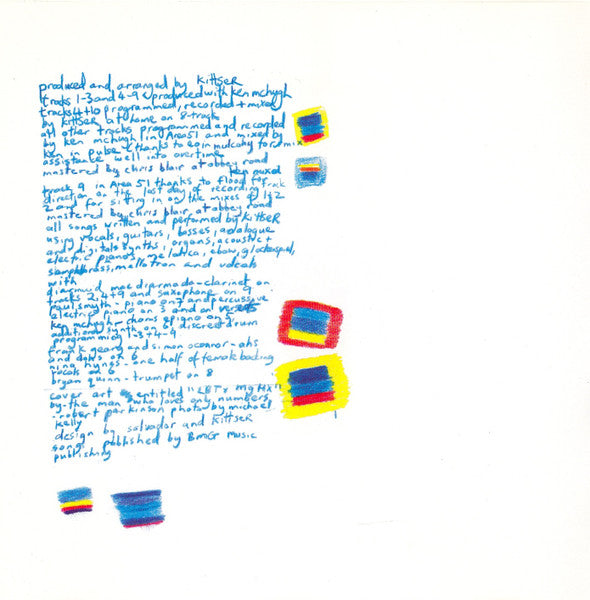 produced and arranged by KittSeR
tracks 1-3 and 4-9 produced with ken mchugh
tracks 4+10 programmed, recorded + mixed
by KittSeR at home on 8-track
all other tracks programmed and recorded
by ken mchugh in Area 51 and mixed by
ken in pulse thanks to eoin mulcahy for mix
assistance well into overtime
mastered by chris blair at abbey road
ken mixed
track 9 in Area 51 thanks to flood for
direction on the last day of recording track
2 and for sitting in on the mixes of 1+2
mastered by chris blair at abbey road
all songs written and performed by KittSeR
using vocals, guitars, basses, analogue
and digital synths, organs, acoustic +
electric pianos, melodica, ebow, glockenspiel,
brass, mellotron and vocals
with
diarmuid mac diarmada - clarinet on
tracks 2, 4+9 and saxophone on 9
paul smyth - piano on 7 and percussive
electric piano on 3 and on
ken mchugh - piano on 3
additional synth on 6 discreet drum
programming 1-3+4-9
frank geary and simon oconnor - ahs
and dahs on 6
nina hynes - one half of female backing
vocals on 6
bryan quinn - trumpet on 8
cover art entitled
by - the man who loves only numbers
- robert parkinson photo by michael
kelly
design by salvador and KittSeR
songs published by BMG music
publishing